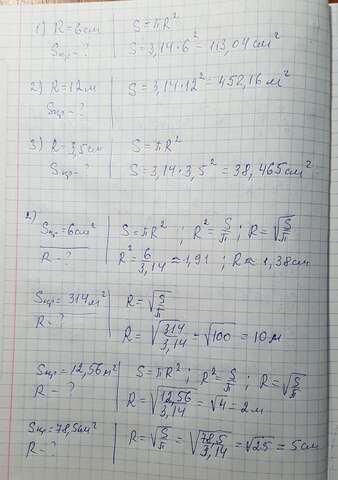 1) R=6см | S=πR²
Sкр-? | S=3,14·6²=113,04см²
2) R=12м | S=3,14·12²=452,16м²
Sкр-?
3) R=3,5см | S=πR²
Sкр-? | S=3,14·3,5²=38,465см²
2)
Sкр=6см² | S=πR² ; R²=S/π ; R=√(S/π)
R=? | R²=6/3,14≈1,91 ; R≈1,38см
Sкр=314м² | R=√(S/π)
R=? | R=√(314/3,14)=√100=10м
Sкр=12,56м² | S=πR² ; R²=S/π ; R=√(S/π)
R-? | R=√(12,56/3,14)=√4=2м
Sкр=78,5см² | R=√(S/π)=√(78,5/3,14)=√25=5см
R-?